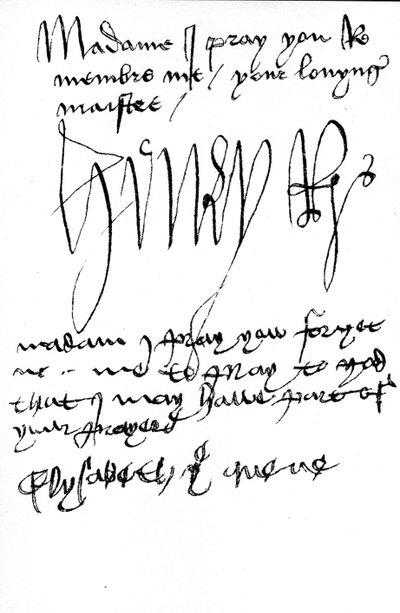 Madame I pray you Re
membre me / your lovyng
maistre /
Henry R
madam I pray you forget
not me to pray to god
that I may have part of
your prayers
Elysabeth ye quene